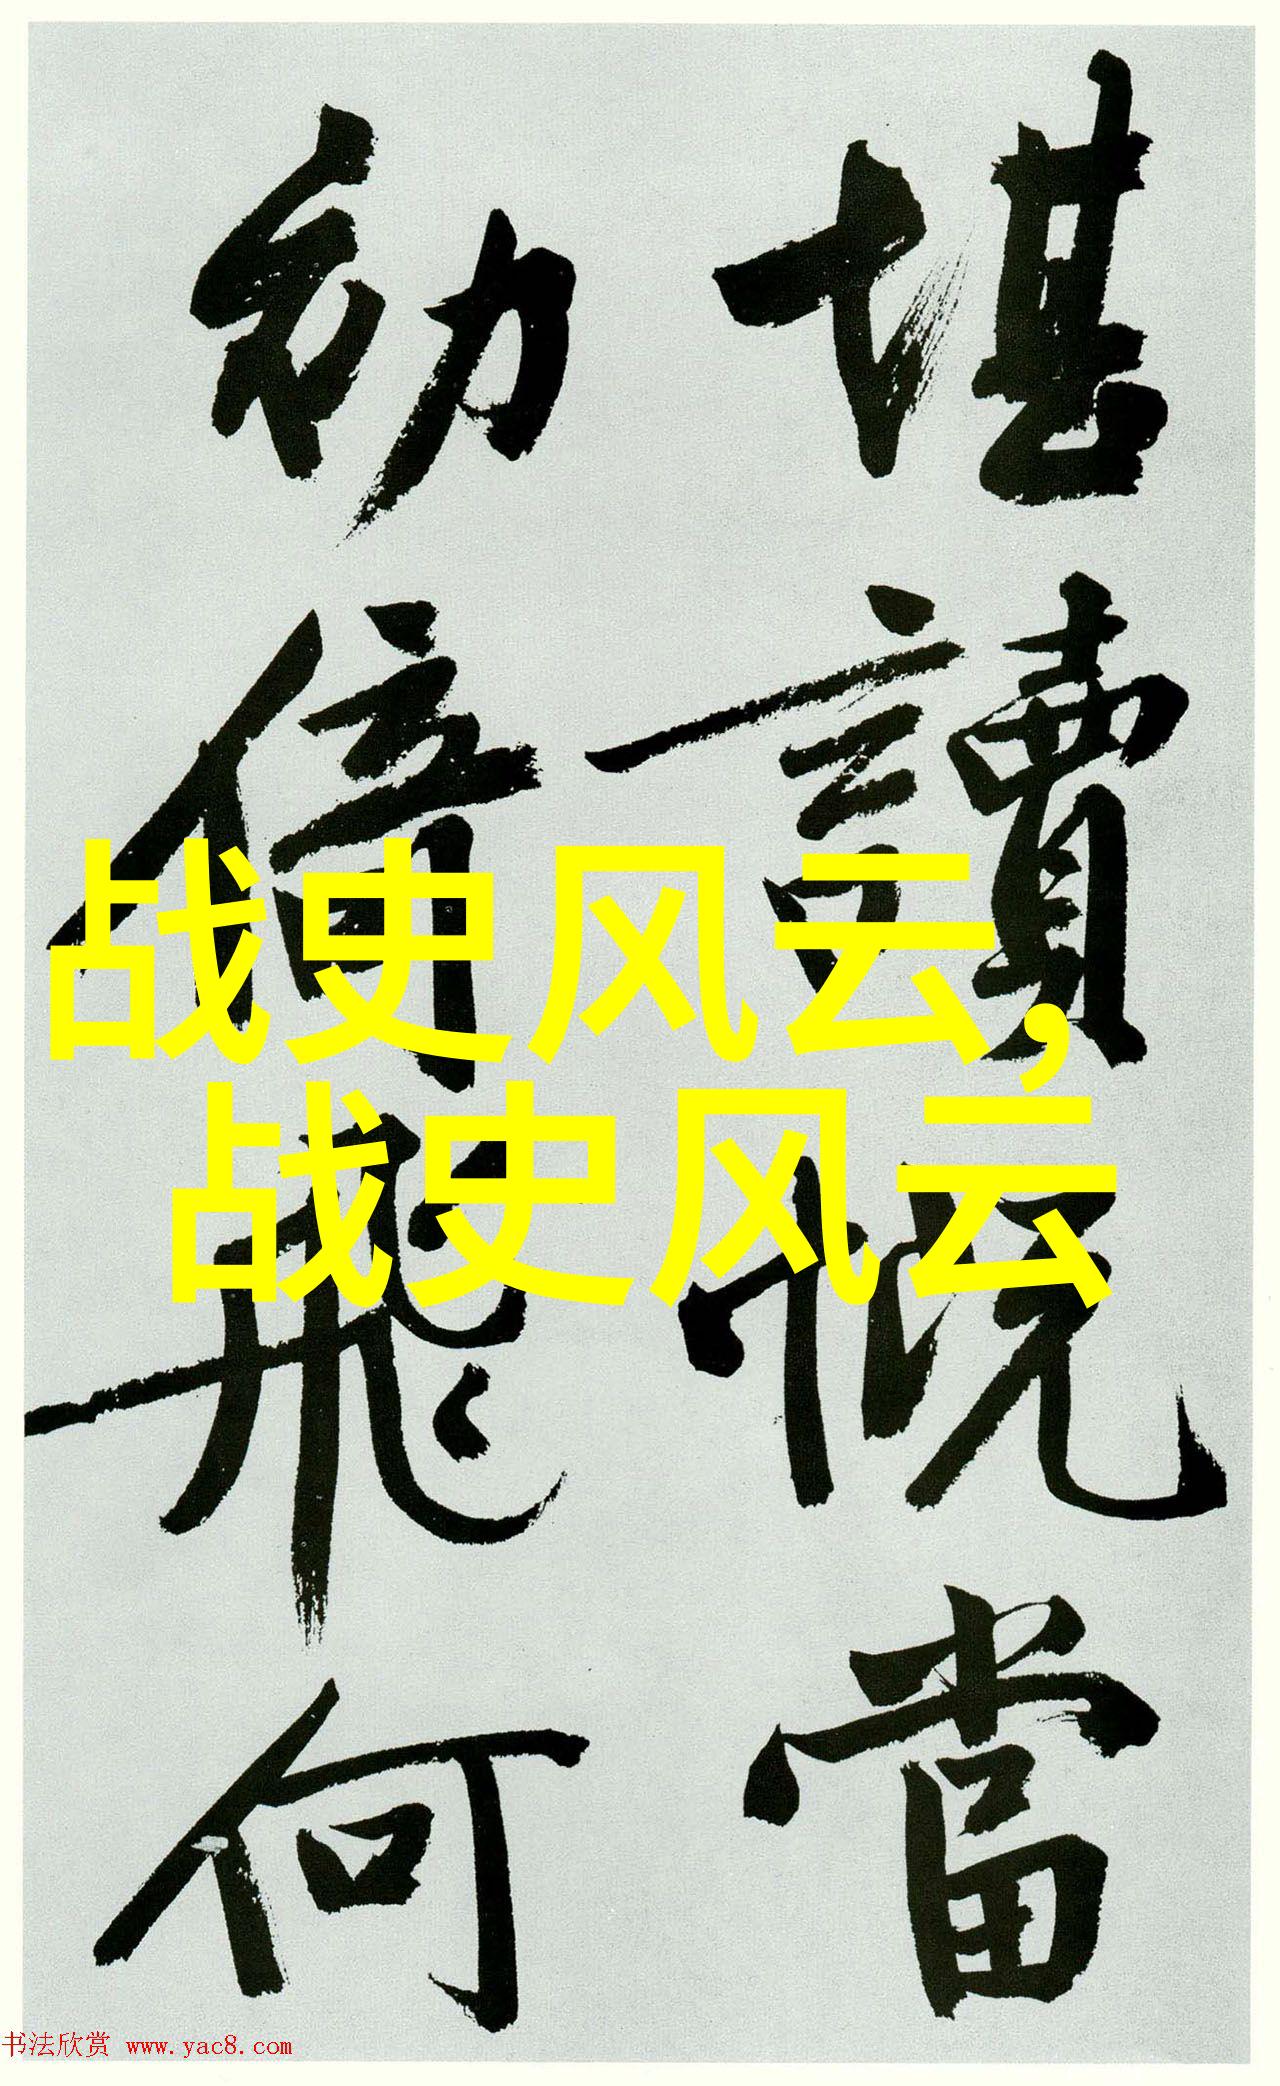 堪讀慨當
幼倚飛何
战史风云,
战史风云
书法欣赏 www.yac8.com